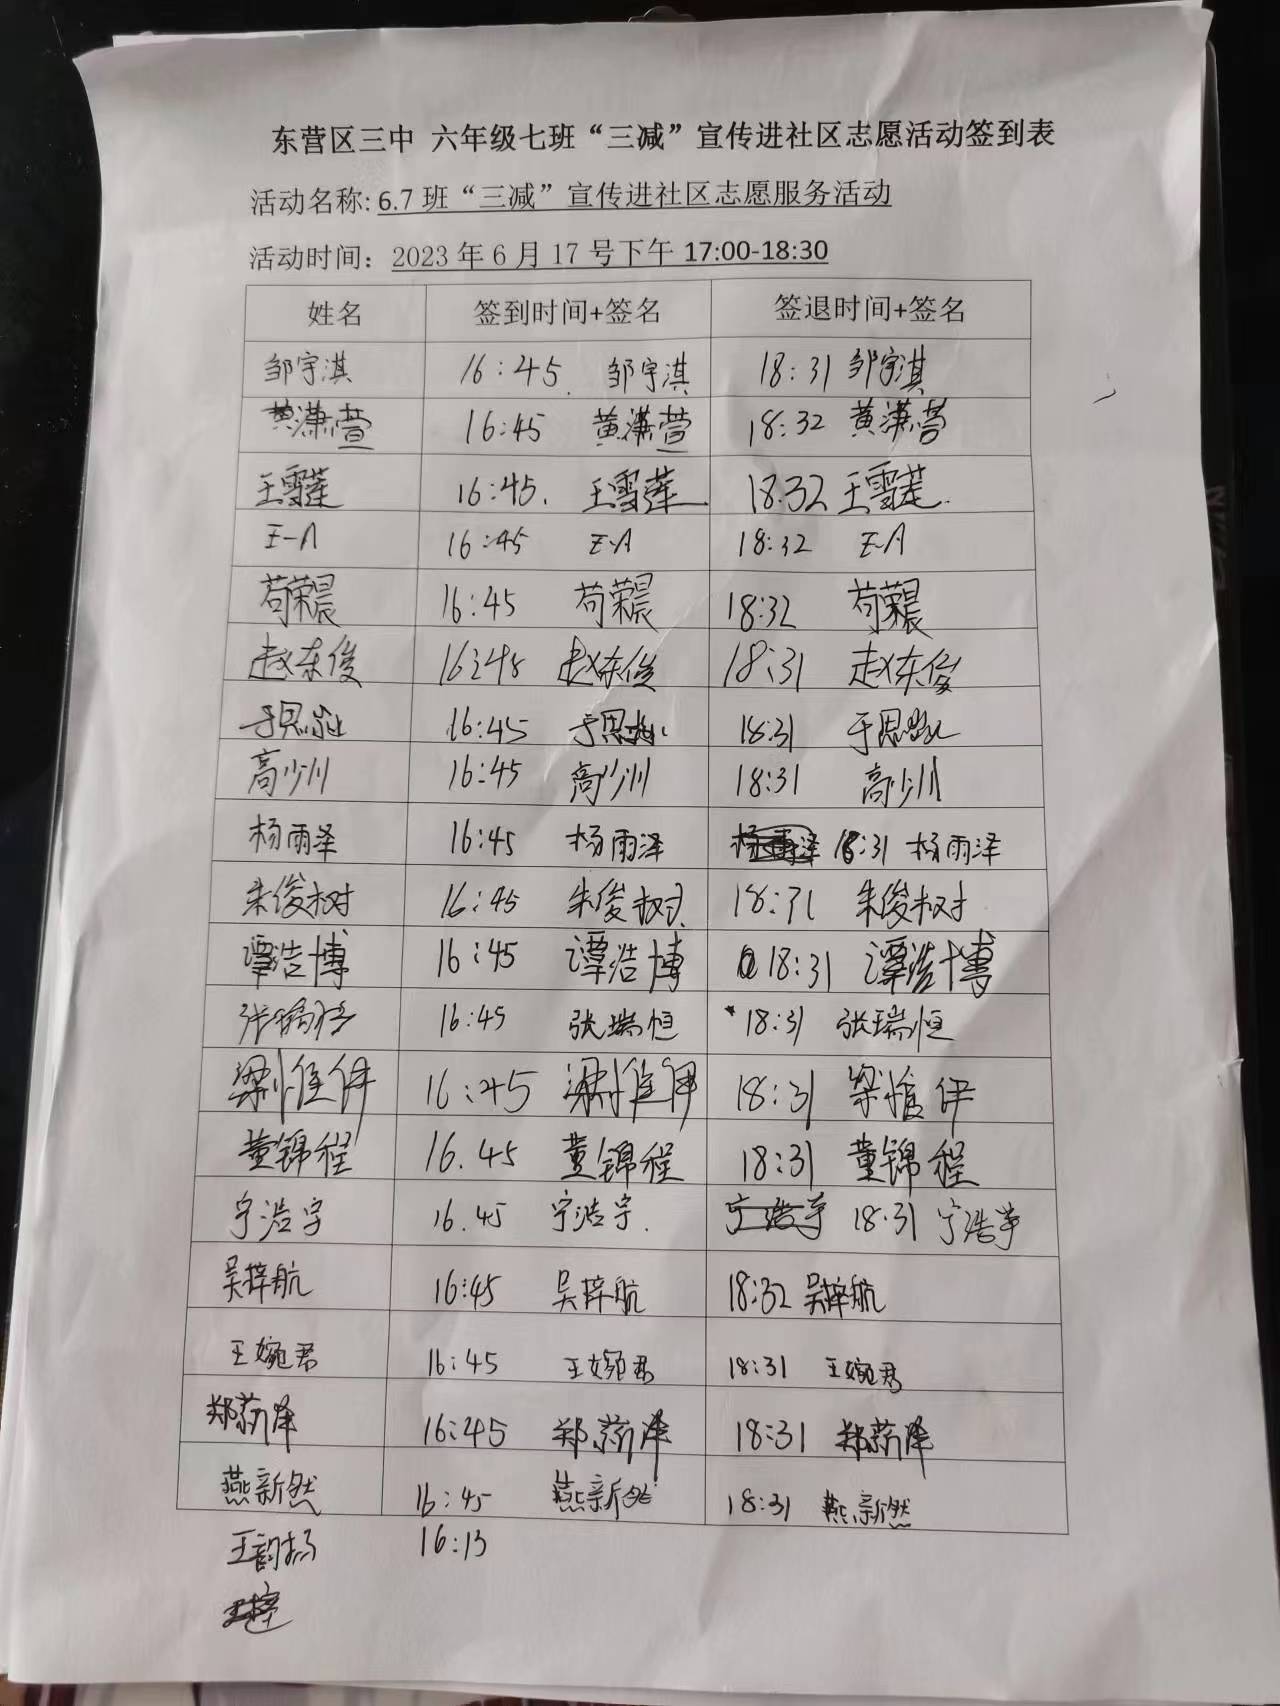 东营区三中 六年级七班“三减”宣传进社区志愿活动签到表
活动名称: 6.7班“三减”宣传进社区志愿服务活动
活动时间：2023年6月17号下午 17:00-18:30
姓名 签到时间+签名 签退时间+签名
邹宇淇 16:45 邹宇淇 18:31 邹宇淇
黄潇萱 16:45 黄潇萱 18:32 黄潇萱
王雪莲 16:45. 王雪莲 18:32 王雪莲
16:45 18:32
苟荣晨 16:45 苟荣晨 18:32 苟荣晨
赵东俊 16:45 赵东俊 18:31 赵东俊
于思 16:45 于思 18:31 于思
高少川 16:45 高少川 18:31 高少川
杨雨泽 16:45 杨雨泽 18:31 杨雨泽
朱俊树 16:45 朱俊树 18:31 朱俊树
谭浩博 16:45 谭浩博 18:31 谭浩博
张瑞恒 16:45 张瑞恒 18:31 张瑞恒
梁惟伊 16:45 梁惟伊 18:31 梁惟伊
董锦程 16.45 董锦程 18:31 董锦程
宁浩宇 16.45 宁浩宇. 18:31 宁浩宇
吴梓航 16:45 吴梓航 18:32 吴梓航
王婉君 16:45 王婉君 18:31 王婉君
郑蒴泽 16:45 郑蒴泽 18:31 郑蒴泽
燕新然 16:45 燕新然 18:31 燕新然
王韵扬 16:13